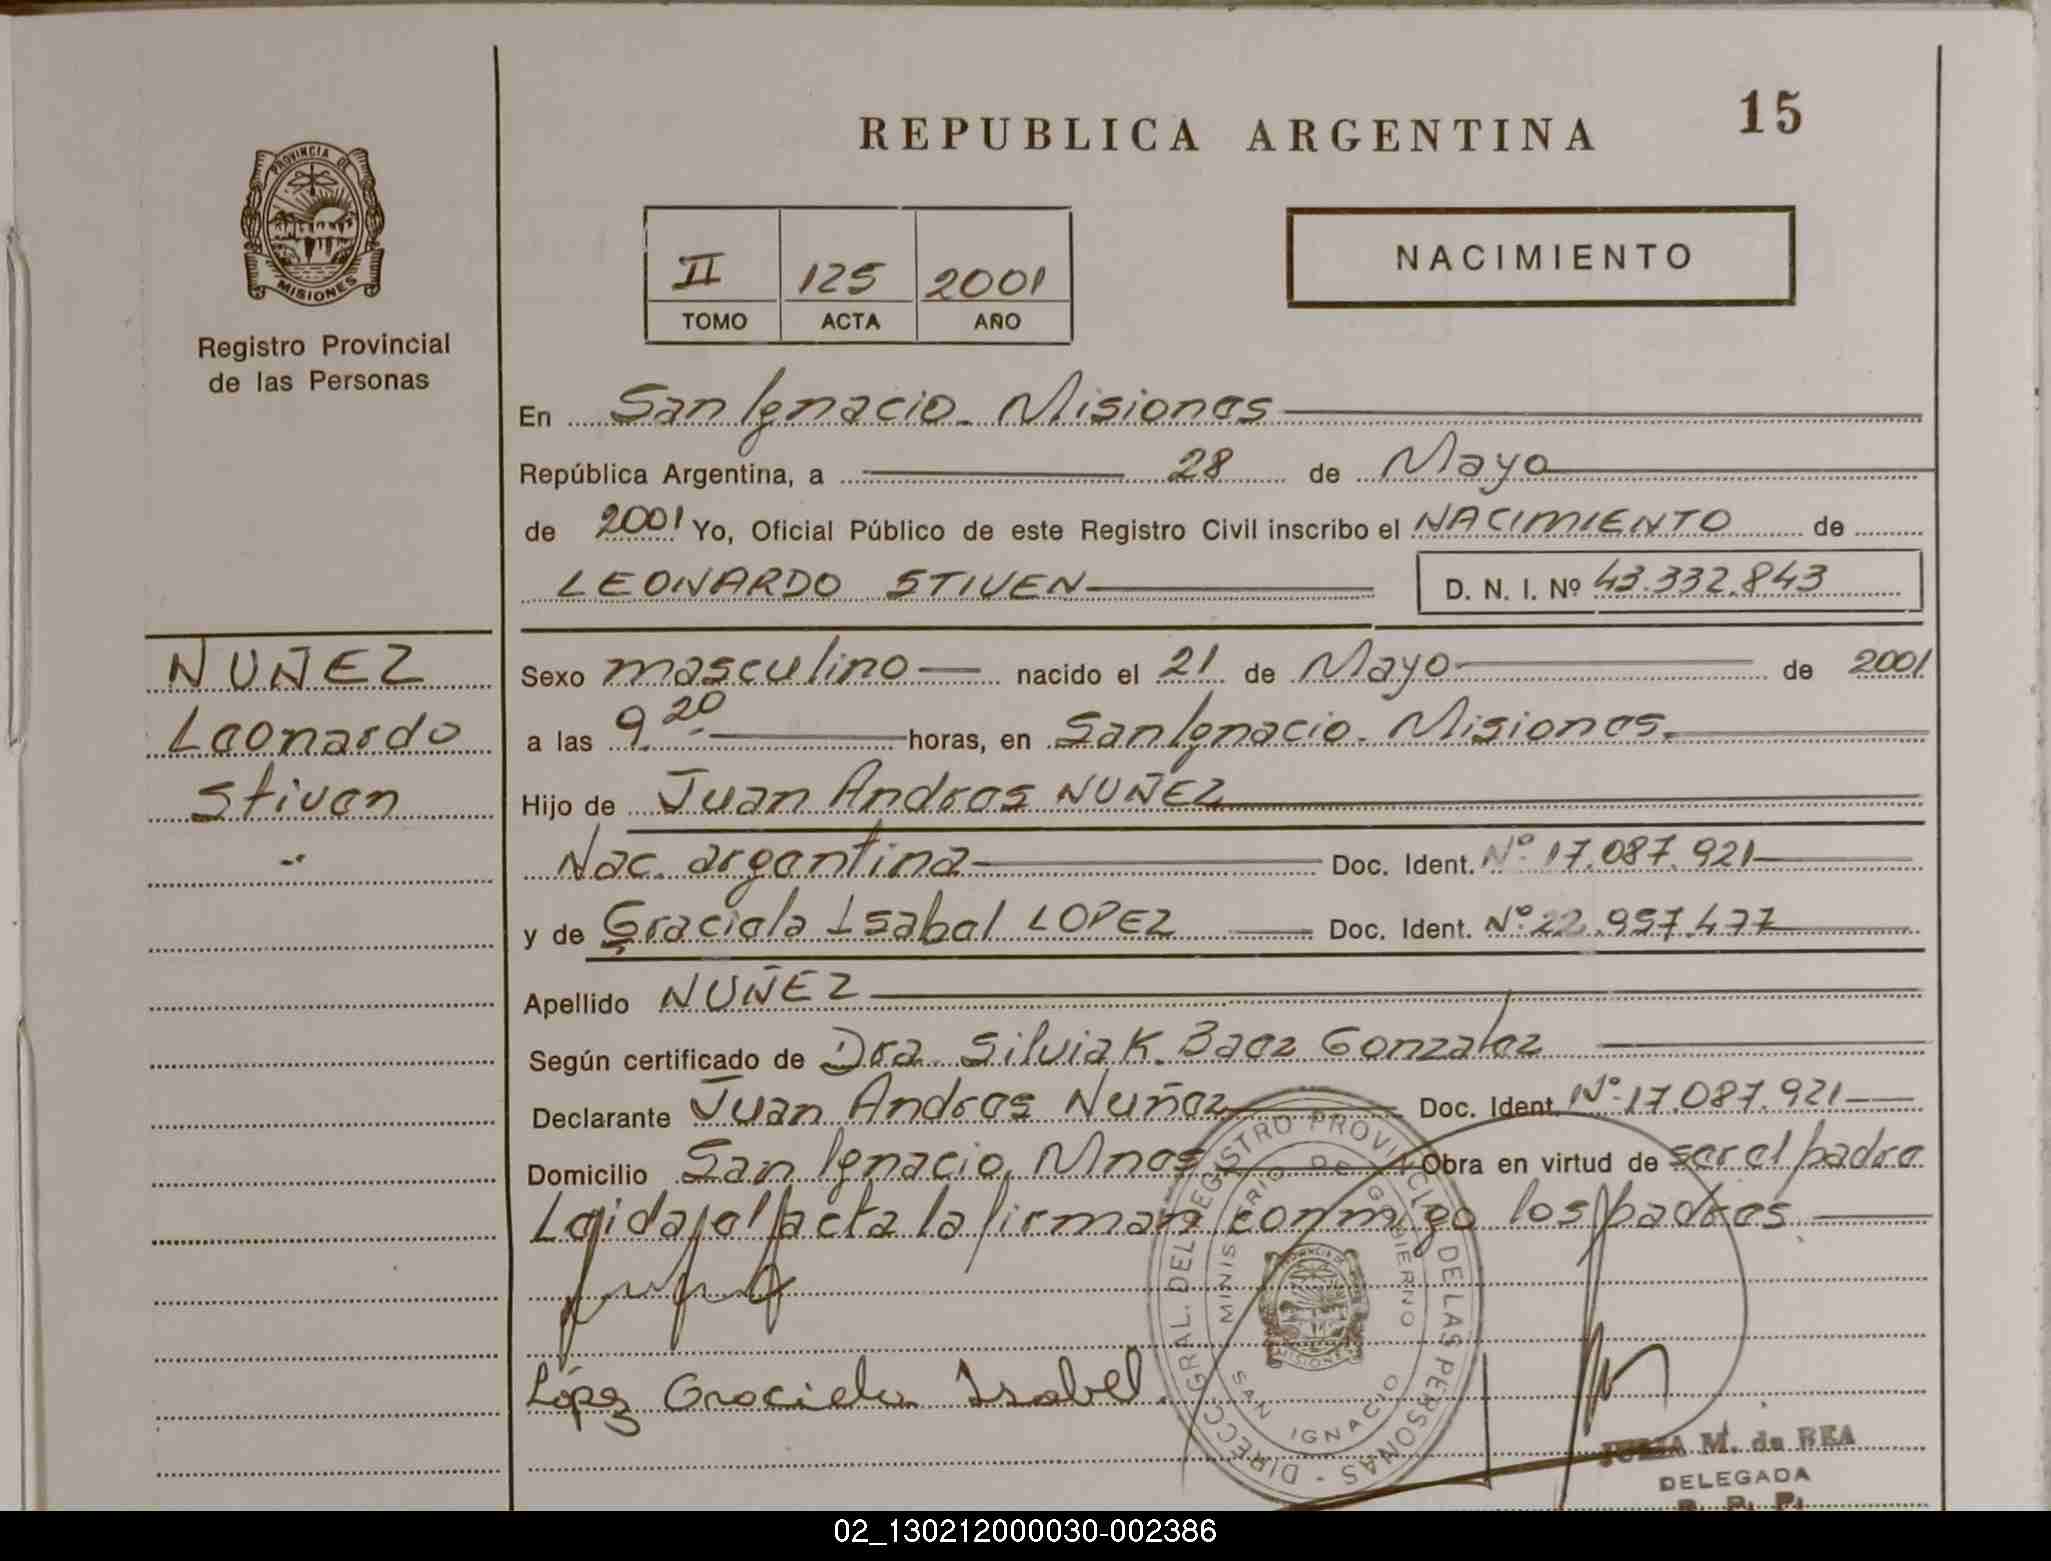 REPUBLICA ARGENTINA
15
PROVINCIA DE
MISIONES
Registro Provincial
de las Personas
II 125 2001
TOMO ACTA AÑO
NACIMIENTO
En San Ignacio - Misiones
República Argentina, a 28 de Mayo
de 2001 Yo, Oficial Público de este Registro Civil inscribo el NACIMIENTO de
LEONARDO STIVEN D. N. I. Nº 43.332.843
NUÑEZ
Leonardo
Stiven
Sexo masculino nacido el 21 de Mayo de 2001
a las 9.20 horas, en San Ignacio - Misiones.
Hijo de Juan Andres NUÑEZ
Nac. argentina Doc. Ident. Nº 17.087.921
y de Graciela Isabel LOPEZ Doc. Ident. Nº 22.957.477
Apellido NUÑEZ
Según certificado de Dra. Silvia K. Baez Gonzalez
Declarante Juan Andres Nuñez Doc. Ident. Nº 17.087.921
Domicilio San Ignacio, Mnes Obra en virtud de ser el padre
Leida el acta la firman conmigo los padres
López Graciela Isabel.
DIRECC. GRAL. DEL REGISTRO PROVINCIAL DE LAS PERSONAS -
MINISTERIO DE GOBIERNO
SAN IGNACIO
MISIONES
M. de REA
DELEGADA
02_130212000030-002386